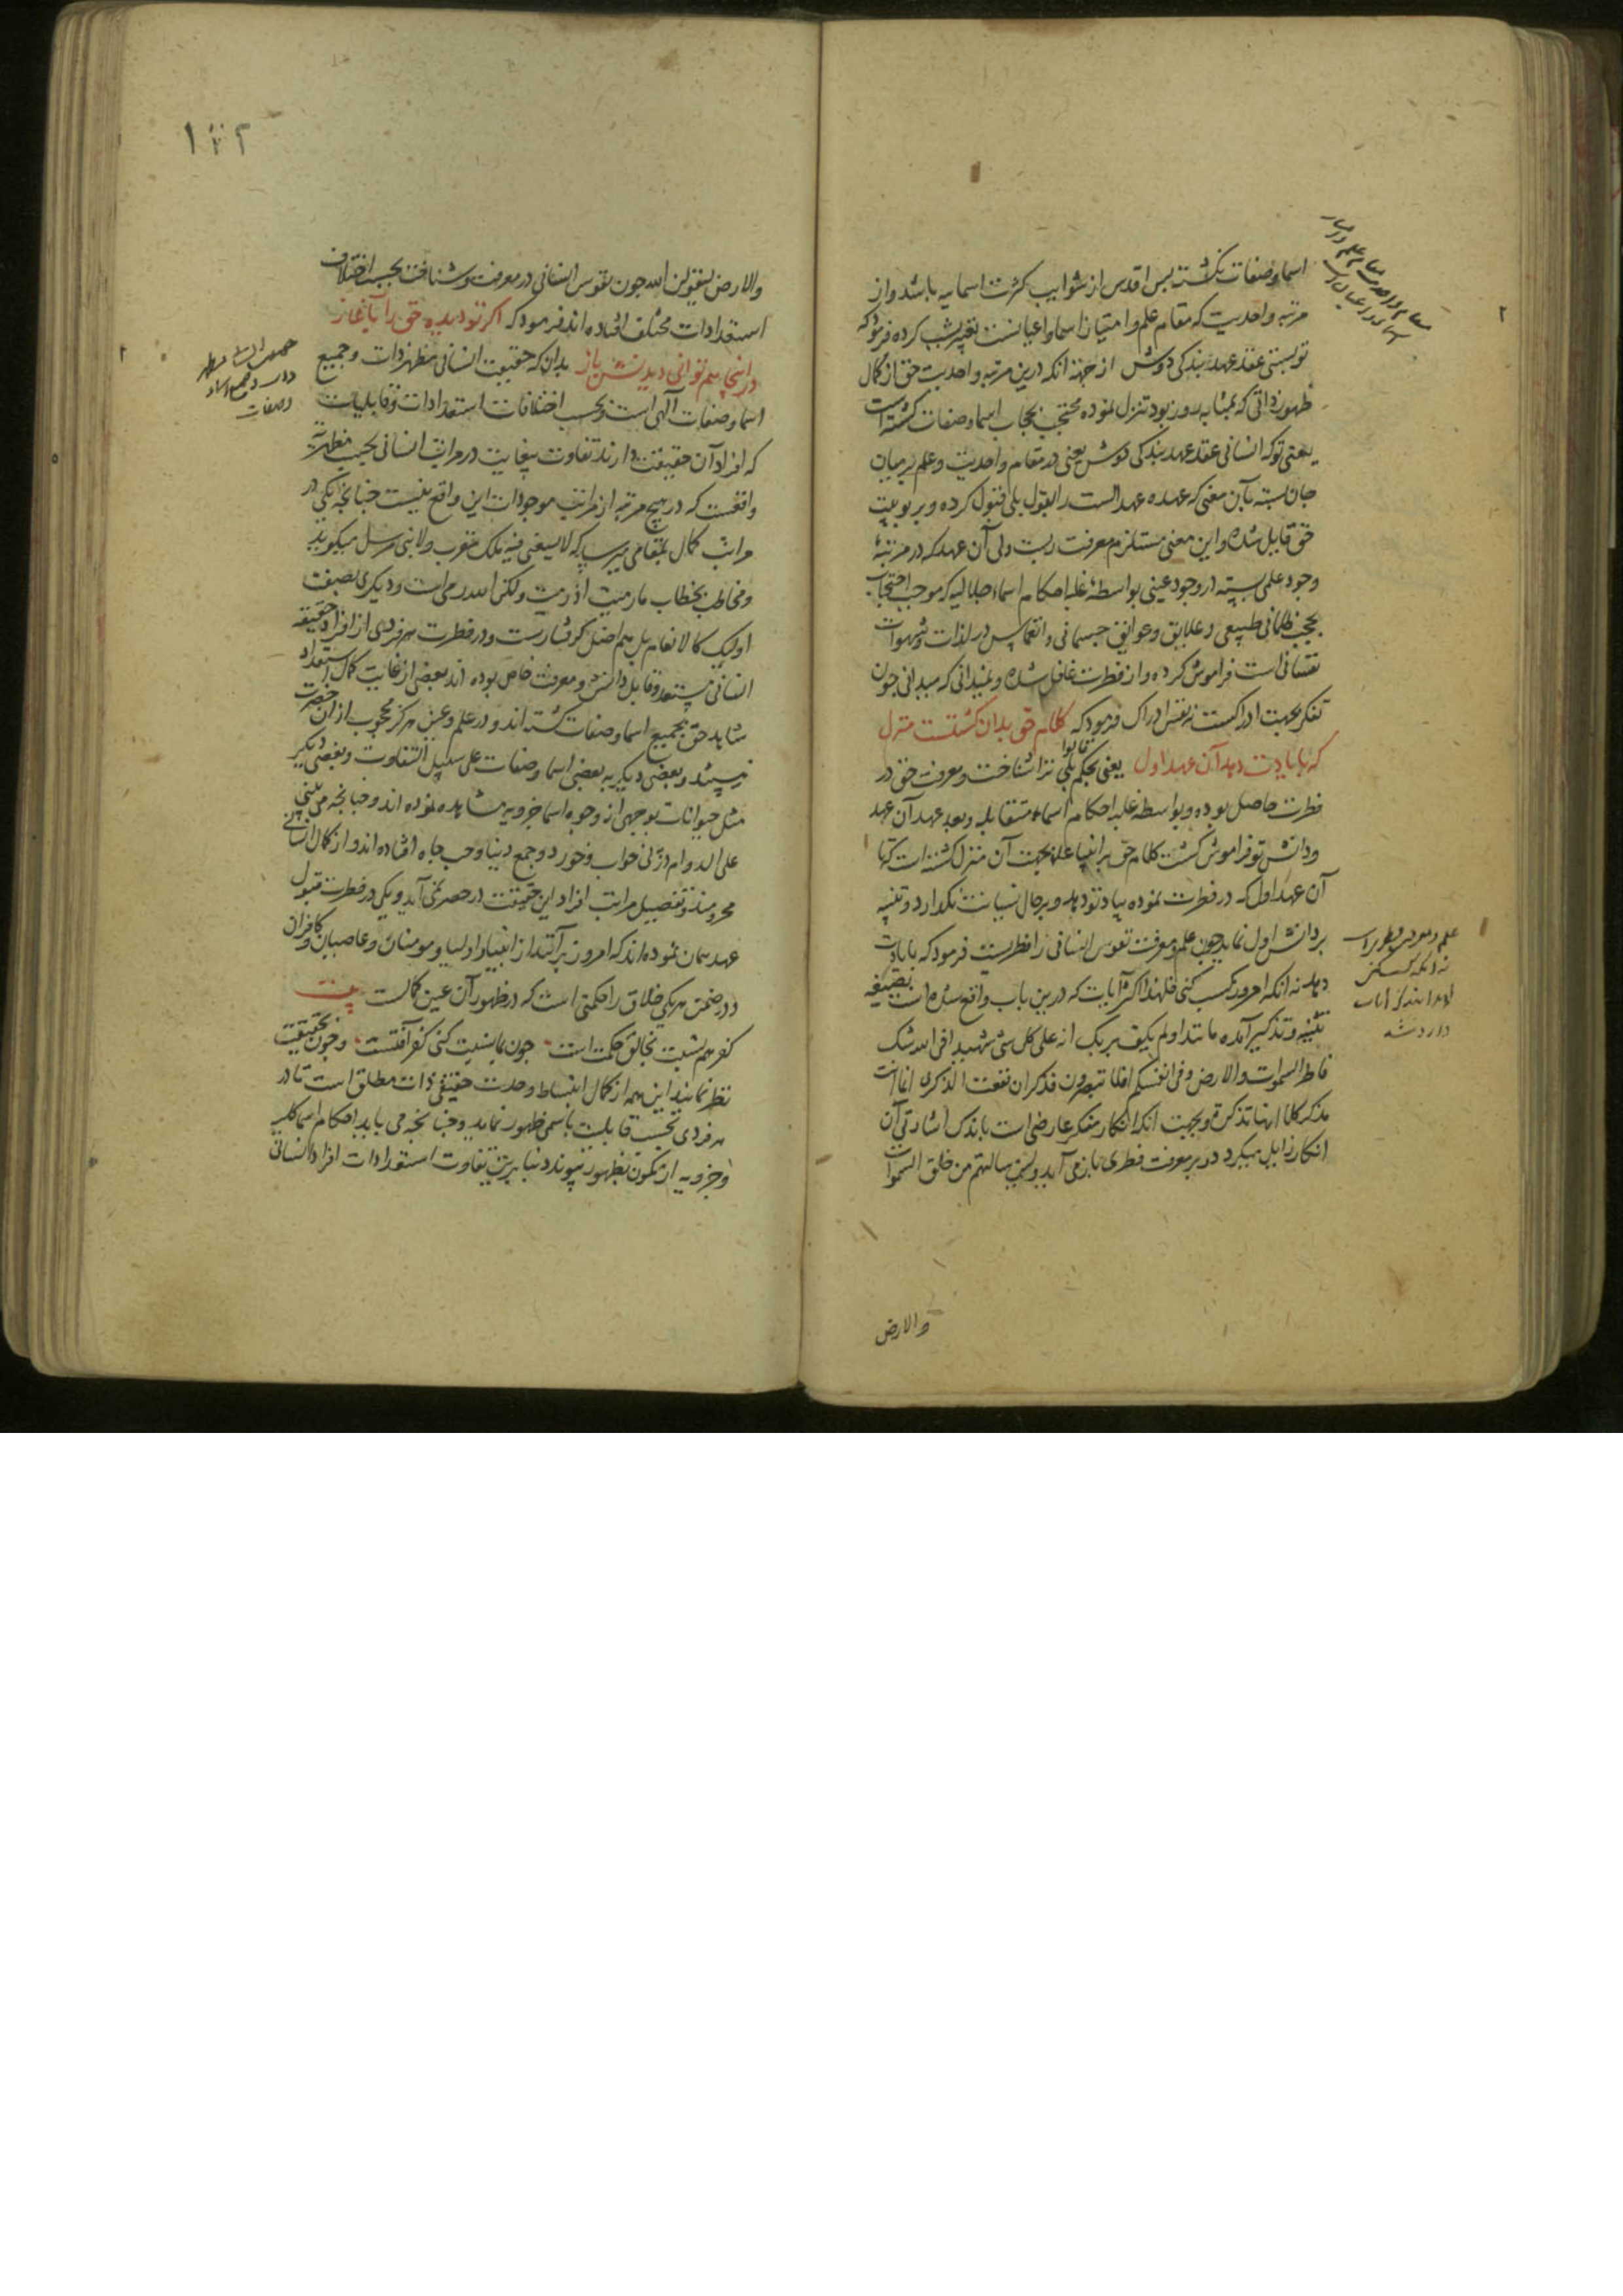 اسما و صفات نگشته پس اقدس از شوایب کثرت اسمایه باشد و از
مرتبه واحدیت که مقام علم و امتیاز اسما و اعیانست تعبیر بشب کرده فرمود که
تو بستی عقد عهد بندکی دوش از جهة انکه درین مرتبه واحدیت حق از کمال
ظهور ذاتی که بمثابه روز بود تنزل نموده محتجب بحجاب اسما و صفات کشته است
یعنی تو که انسانی عقد عهد بندکی دوش یعنی در مقام واحدیت و علم بر میان
جان بسته بآن معنی که عهده عهد الست را بقول بلی قبول کرده و بربوبیت
حق قایل شده و این معنی مستلزم معرفت ربست ولی آن عهد که در مرتبه
وجود علمی بسته در وجود عینی بواسطه غلبه احکام اسماء جلالیه که موجب احتجاب
بحجب ظلمانی طبیعی و علایق و عوایق جسمانی و انغماس در لذات و شهوات
نفسانی است فراموش کرده و از فطرت غافل شده و نمیدانی که میدانی چون
تفکر بجهت ادراکست نه نفس ادراک فرمود که کلام حق بدان کشتست منزل
که تا یادت دهد آن عهد اول یعنی بحکم قالوا بلی ترا شناخت و معرفت حق در
فطرت حاصل بوده و بواسطه غلبه احکام اسماء متقابله و بعد عهد آن عهد
و دانش تو فراموش کشت کلام حق بر انبیا علهم بجهت آن منزل کشته است که تا
آن عهد اول که در فطرت نموده بیاد تو دهد و بر حال نسیانت نکذارد و تنبیه
بر دانش اول نماید چون علم و معرفت نفوس انسانی را فطریست فرمود که با یادت
دهد نه انکه امروز کسب کنی فلهذا اکثر آیات که درین باب واقع شده است بصیغه
تنبیه و تذکیر آمده مانند اولم یکف بربک انه علی کل شیء شهید افی الله شک
فاطر السموات والارض و فی انفسکم افلا تبصرون فذکر ان نفعت الذکری انما انت
مذکر کلا انها تذکرة و بجهت انکه انکار منکر عارضی است باندک اشارتی آن
انکار زایل میکردد و بر معرفت فطری باز می آید ولئن سالتهم من خلق السموات
والارض
والارض لیقولن الله چون نفوس انسانی در معرفت و شناخت بحسب اختلاف
استعدادات مختلف افتاده اند فرمود که اکر تو دیده حق را بآغاز
در اینجا هم توانی دیدنش باز بدان که حقیقت انسانی مظهر ذات و جمیع
اسما و صفات آلهی است و بحسب اختلافات استعدادات و قابلیات
که افراد آن حقیقت دارند تفاوت بیغایت در مراتب انسانی بحسب مظهریة
واقعست که در هیچ مرتبه از مراتب موجودات این واقع نیست چنانچه یکی در
مراتب کمال بمقامی میرسد که لا یسعنی فیه ملک مقرب ولا نبی مرسل میکوید
و مخاطب بخطاب ما رمیت اذ رمیت ولکن الله رمی است و دیکری بصفت
اولئک کالانعام بل هم اضل کرفتارست و در فطرت هر فردی از افراد حقیقة
انسانی مستعد و قابل دانش و معرفت خاص بوده اند بعضی از غایت کمال استعداد
شاهد حق بجمیع اسما و صفات کشته اند و در علم و عین هرکز محجوب از آن حضرت
نیستند و بعضی دیکر به بعضی اسما و صفات علی سبیل التفاوت و بعضی دیکر
مثل حیوانات بوجهی از وجوه اسما جزویه مشاهده نموده اند و چنانچه می بینی
علی الدوام در پی خواب و خور و جمع دنیا و حب جاه افتاده اند و از کمال انسانی
محرومند و تفصیل مراتب افراد این حقیقت در حصر نمی آید و یکی در فطرت قبول
عهد همان نموده اند که امروز برآنند از انبیا و اولیا و مومنان و عاصیان و کافران
و در ضمن هر یکی خلاق را حکمتی است که در ظهور آن عین کمالست بیت
کفر هم نسبت بخالق حکمت است چون بما نسبت کنی کفر آفتست و چون بحقیقت
نظر نمایند این همه از کمال انبساط وحدت حقیقی ذات مطلق است تا در
هر فردی بحسب قابلیت باسمی ظهور نماید و چنانچه می باید احکام اسما کلیه
و جزویه از مکون بظهور پیوندد بنابرین بتفاوت استعدادات افراد انسانی